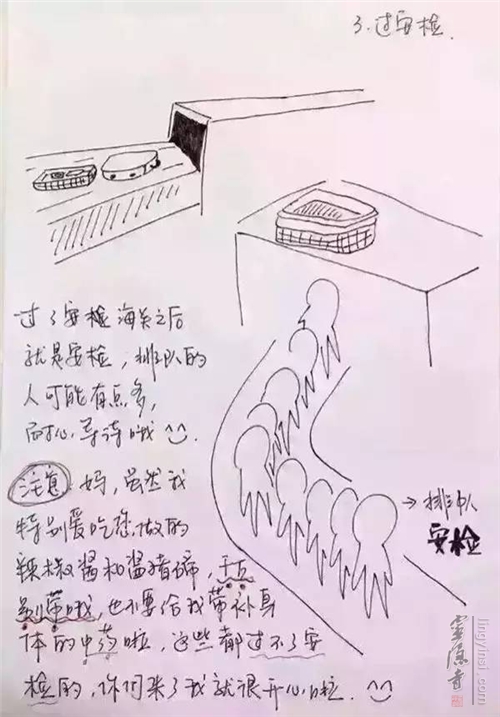 3.过安检.
过了安检海关之后
就是安检，排队的
人可能有点多，
耐心等待哦
注意 妈，虽然我
特别爱吃您做的
辣椒酱和酱猪蹄，千万
别带哦，也不要给我带补身
体的中药啦，这些都过不了安
检的，你们来了我就很开心啦.
→排队
安检
lingyinsi.com